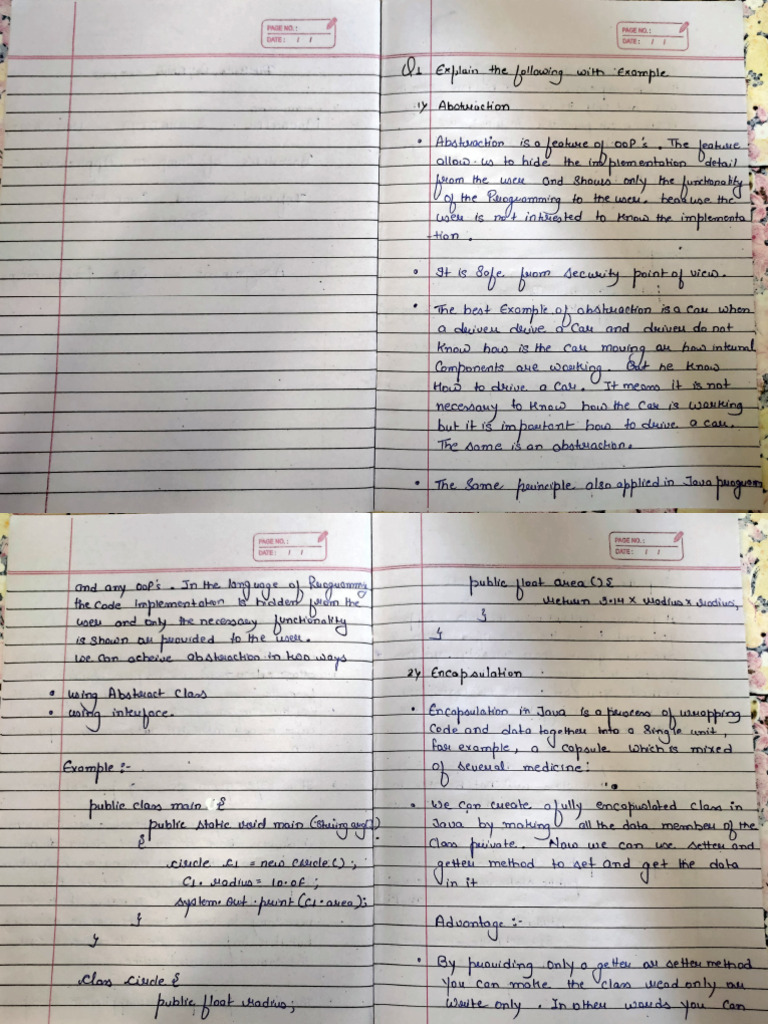 PAGE NO.:
DATE: / /
PAGE NO.:
DATE: / /
Q1 Explain the following with Example
1) Abstraction
• Abstraction is a feature of OOP's. The feature
allow us to hide the implementation detail
from the user and shows only the functionality
of the Programming to the user. because the
user is not intrested to know the implementa
-tion.
• It is Safe from security point of view.
• The best Example of abstraction is a car when
a driver drive a car and driver do not
know how is the car moving or how internal
components are working. But he know
How to drive a car. It means it is not
necessary to know how the car is working
but it is important how to drive a car.
The same is an abstraction.
• The same principle also applied in Java program
PAGE NO.:
DATE: / /
and any OOP's. In the language of Programming
the code implementation is hidden from the
user and only the necessary functionality
is shown or provided to the user.
we can acheive abstraction in two ways
• using Abstract class
• using interface.
Example :-
public class main {
public static void main (String arg[])
{
circle c1 = new circle();
c1. radius = 10.0f ;
system. out .print (c1.area);
}
}
class circle {
public float radius;
PAGE NO.:
DATE: / /
public float area () {
return 3.14 × radius × radius;
}
}
2) Encapsulation
• Encapsulation in Java is a process of wrapping
code and data together into a single unit,
for example, a capsule which is mixed
of several medicine:
• We can create a fully encapuslated class in
Java by making all the data member of the
class private. Now we can use setter and
getter method to set and get the data
in it
Advantage :-
• By providing only a getter or setter method
you can make the class read only or
write only. In other words you can